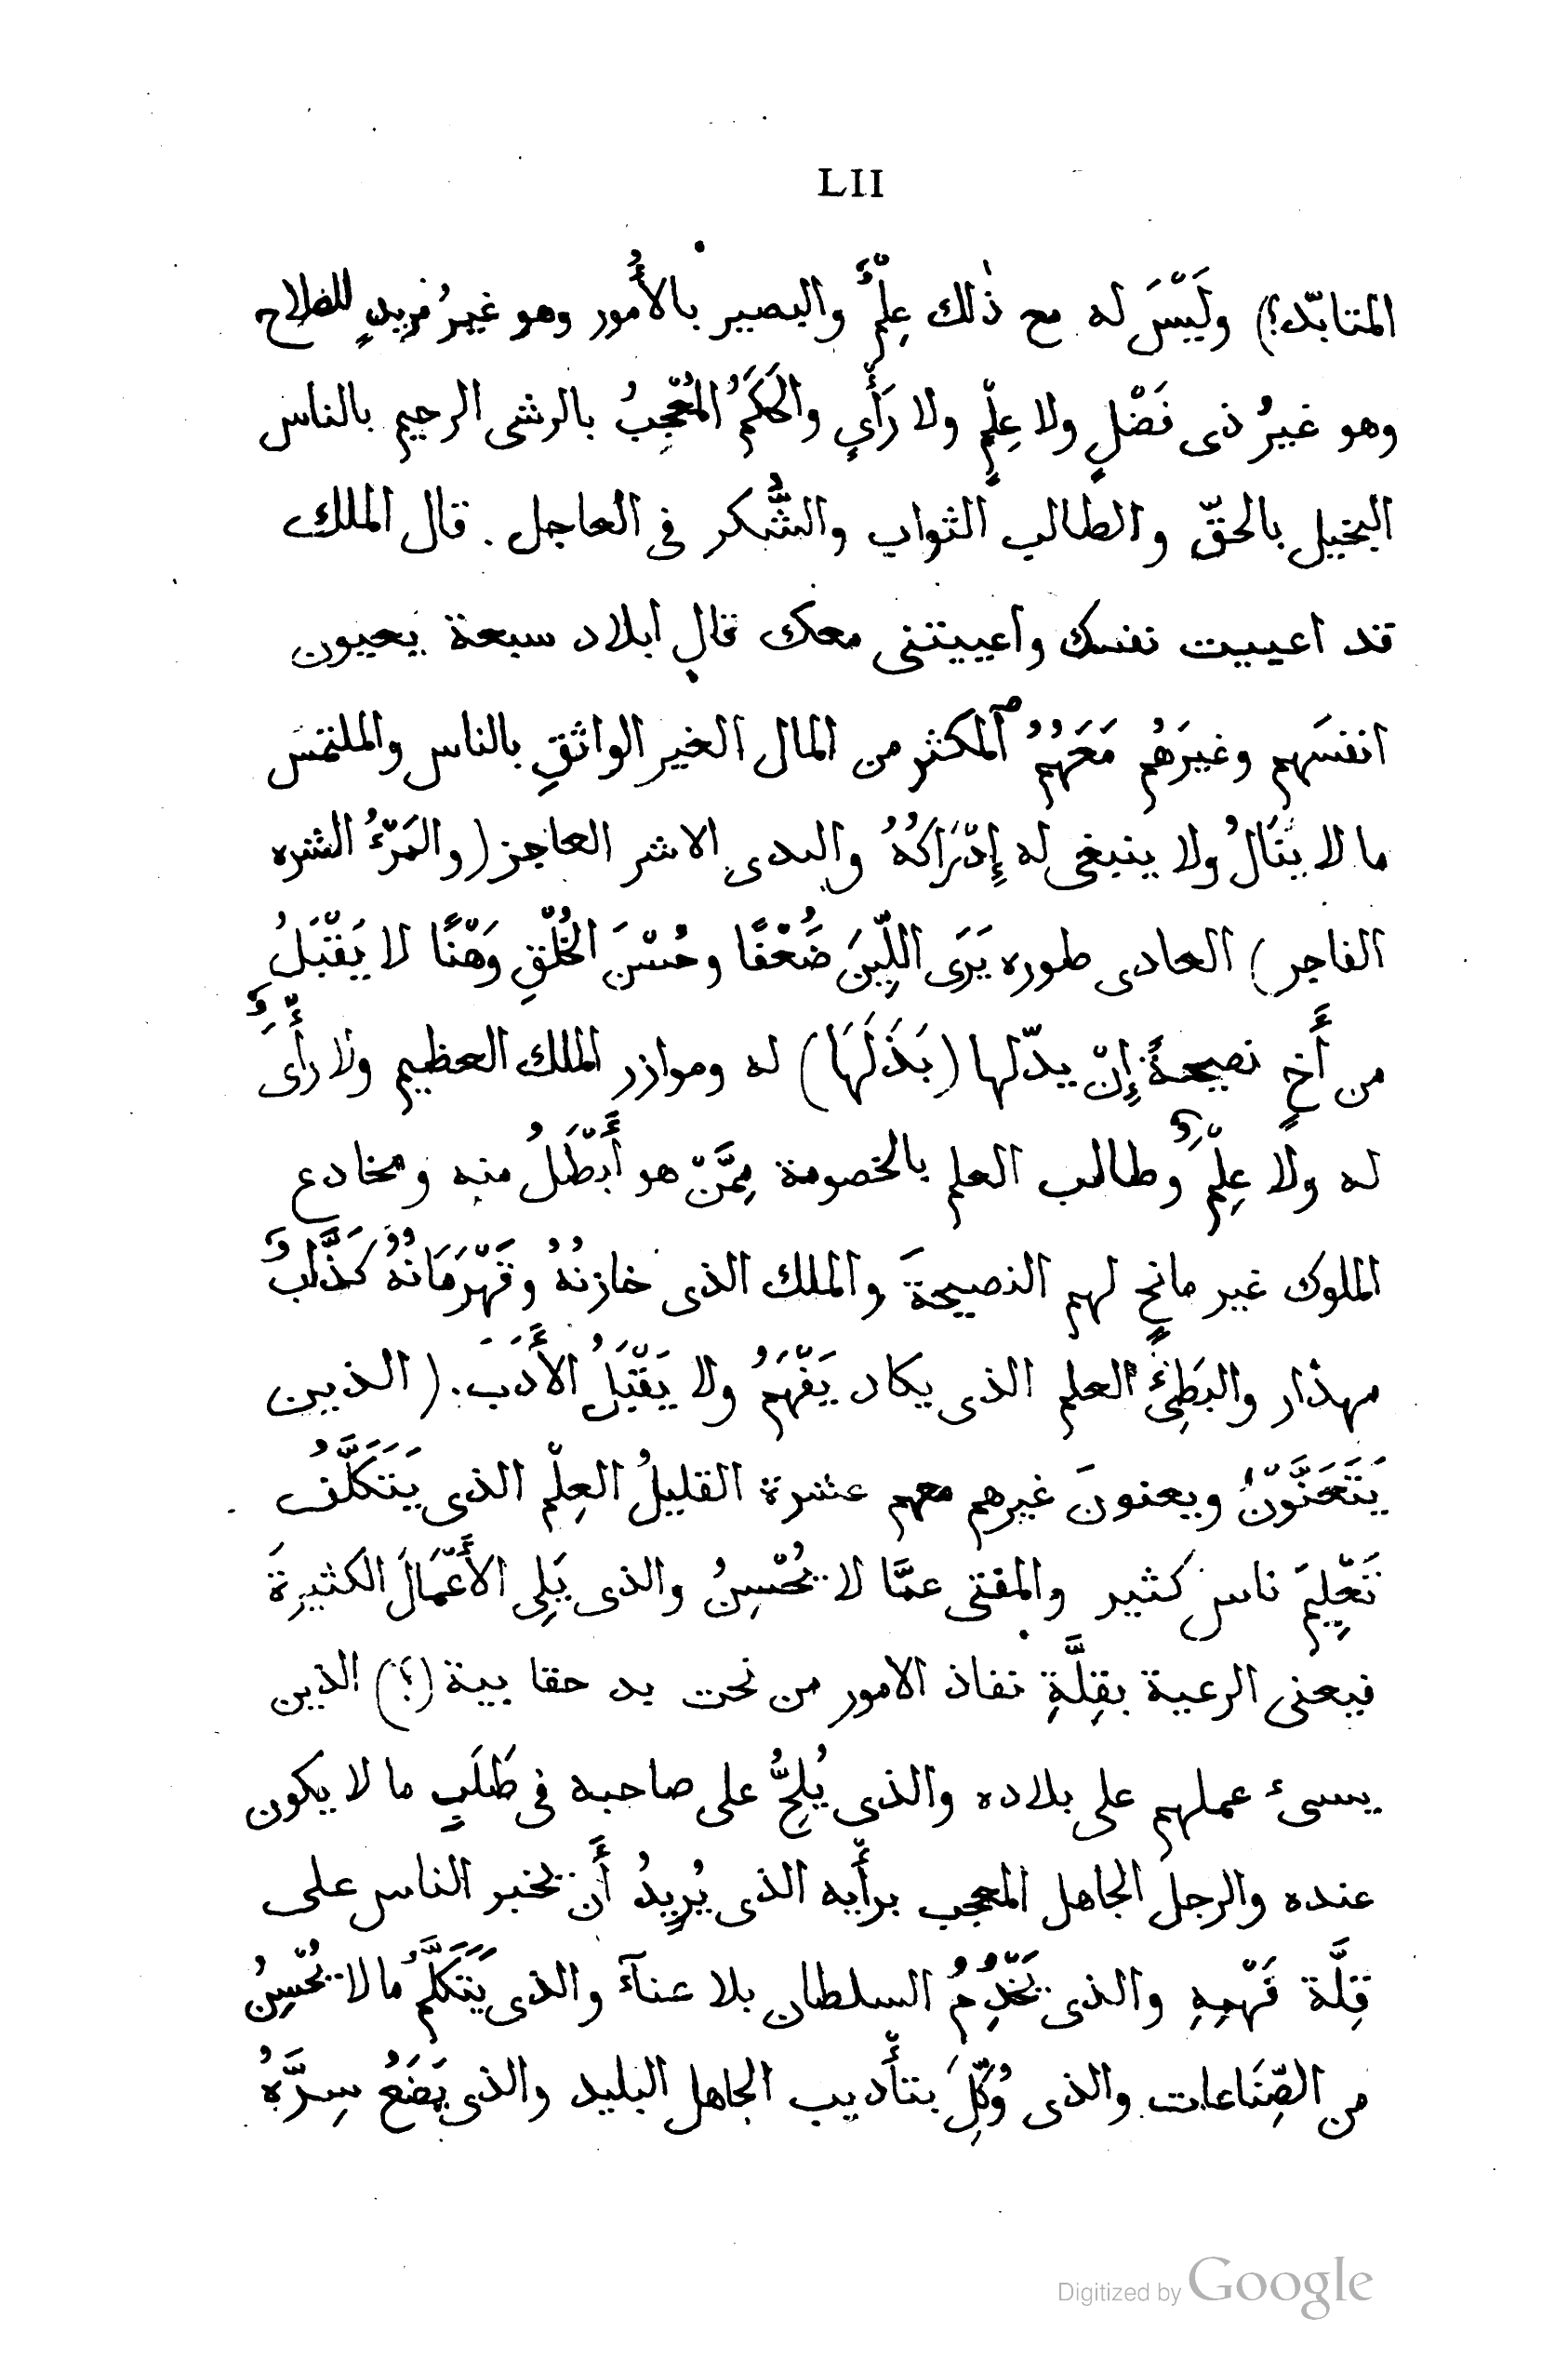 LII
المتابّد؟) ولَيْسَ له مع ذٰلك عِلْمٌ والبصير بالأُمور وهو غيرُ مُريدٍ للفلاح
وهو غيرُ ذى فَضْلٍ ولا عِلْمٍ ولا رَأْىٍ والحَكَمُ المُعْجِبُ بالرشى الرحيم بالناس
البخيل بالحقّ والطالب الثواب والشُّكر فى العاجل . قال الملك
قد اعييت نفسك واعييتنى معك قال ابلاد سبعة يعيون
انفسَهم وغيرَهُم مَعَهُمُ ٱلمكثر من المال الغير الواثقِ بالناس والملتمس
ما لا يَنَالُ ولا ينبغى له إِدْرَاكُهُ والبدى الاشر العاجز (والمَرْءُ الشره
الفاجر) العادى طوره يَرَى اللِّينَ ضُعْفًا وحُسْنَ الخُلْقِ وَهْنًا لا يَقْبَلُ
من أَخٍ نصيحةً إِنْ يدّلها (بَذَلَهَا) له وموازر الملك العظيم ولا رأْىَ
له ولا عِلْمَ وطالب العلم بالخصومة مِمَّنْ هو أَبْطَلُ منه ومخادع
الملوك غير مانحٍ لهم النصيحةَ والملك الذى خازنُهُ وقَهْرَمَانُهُ كَذَّابٌ
مهذار والبَطِئُ العلم الذى يكاد يَفْهَمُ ولا يَقْبَلُ الأَدَبَ. (الذين
يَتَعَنَّوْنَ ويعنونَ غيرهم معهم عشرة القليلُ العِلْم الذى يَتَكَلَّفُ
تَعْلِيمَ ناس كثير والمفتى عمَّا لا يُحْسِنُ والذى يَلِى الأَعْمَالَ الكثيرةَ
فيعنى الرعية بقِلَّةِ نفاذ الامور من تحت يد حقا بية (؟) الذين
يسىء عملهم على بلاده والذى يُلِحُّ على صاحبه فى طَلَبِ ما لا يكون
عنده والرجل الجاهل المعجب برأْيه الذى يُرِيدُ أَن يخبر الناس على
قِلَّة فَهْمِهِ والذى يَخْدُِمُ السلطان بلا عنآء والذى يَتَكَلَّمُ ما لا يُحْسِنُ
من الصِّنَاعات والذى وُكِّلَ بتأْديب الجاهل البليد والذى يَضَعُ سِرَّهُ
Digitized by Google